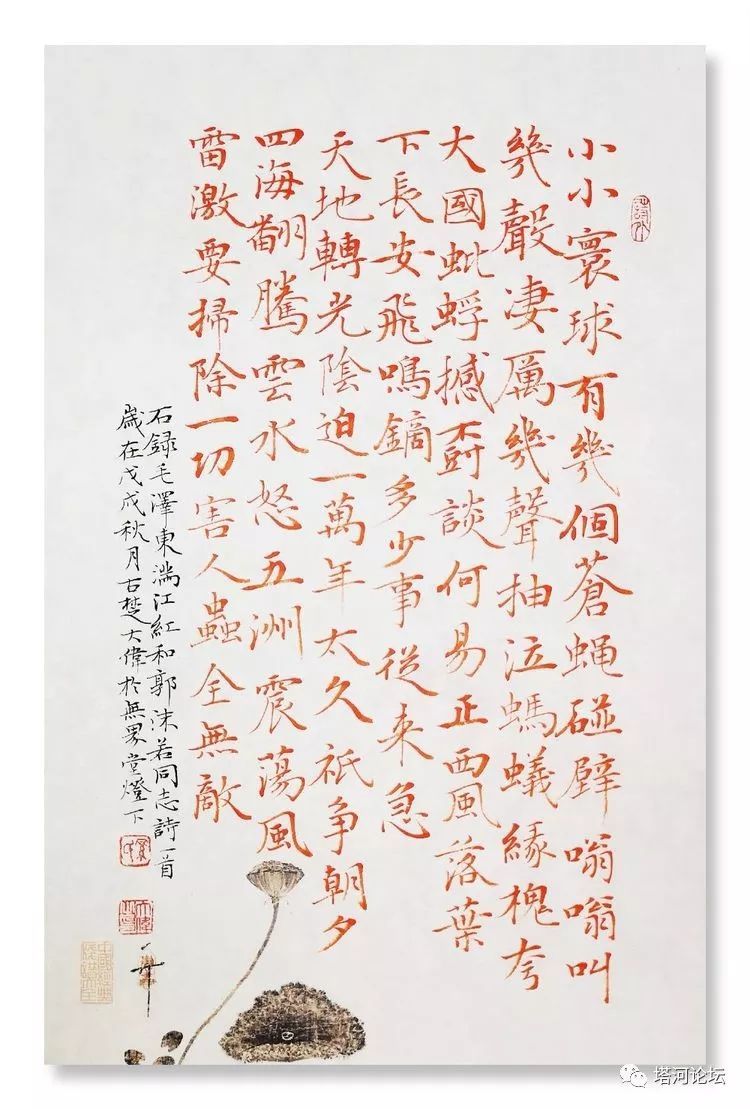 小小寰球有幾個蒼蝿碰壁嗡嗡叫
幾聲凄厲幾聲抽泣螞蟻緣槐夸
大國蚍蜉撼樹談何易正西風落葉
下長安飛鳴鏑多少事從来急
天地轉光陰迫一萬年太久祇争朝夕
四海翻騰雲水怒五洲震蕩風
雷激要掃除一切害人蟲全無敵
石録毛澤東滿江紅和郭沫若同志詩一首
歲在戊戌秋月古楚大偉於無界堂燈下
塔河论坛